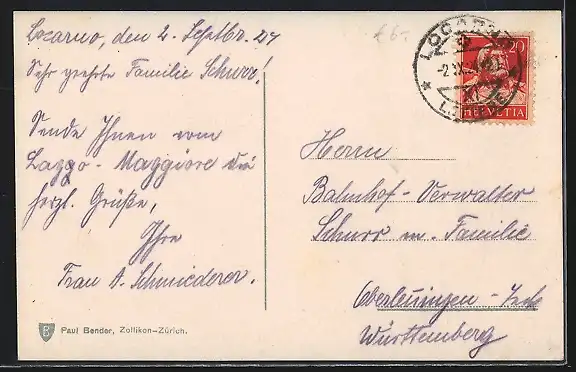 Locarno, den 2. Septbr. 27
Sehr geehrte Familie Schurr!
Sende Ihnen vom
Laggo-Maggiore die
herzl. Grüße,
Ihre
Frau A. Schmiederer.
Paul Bender, Zollikon-Zürich.
€6-
LOCARNO
20
HELVETIA
Herrn
Bahnhof-Verwalter
Schurr m. Familie
Oberlenningen-Teck
Württemberg